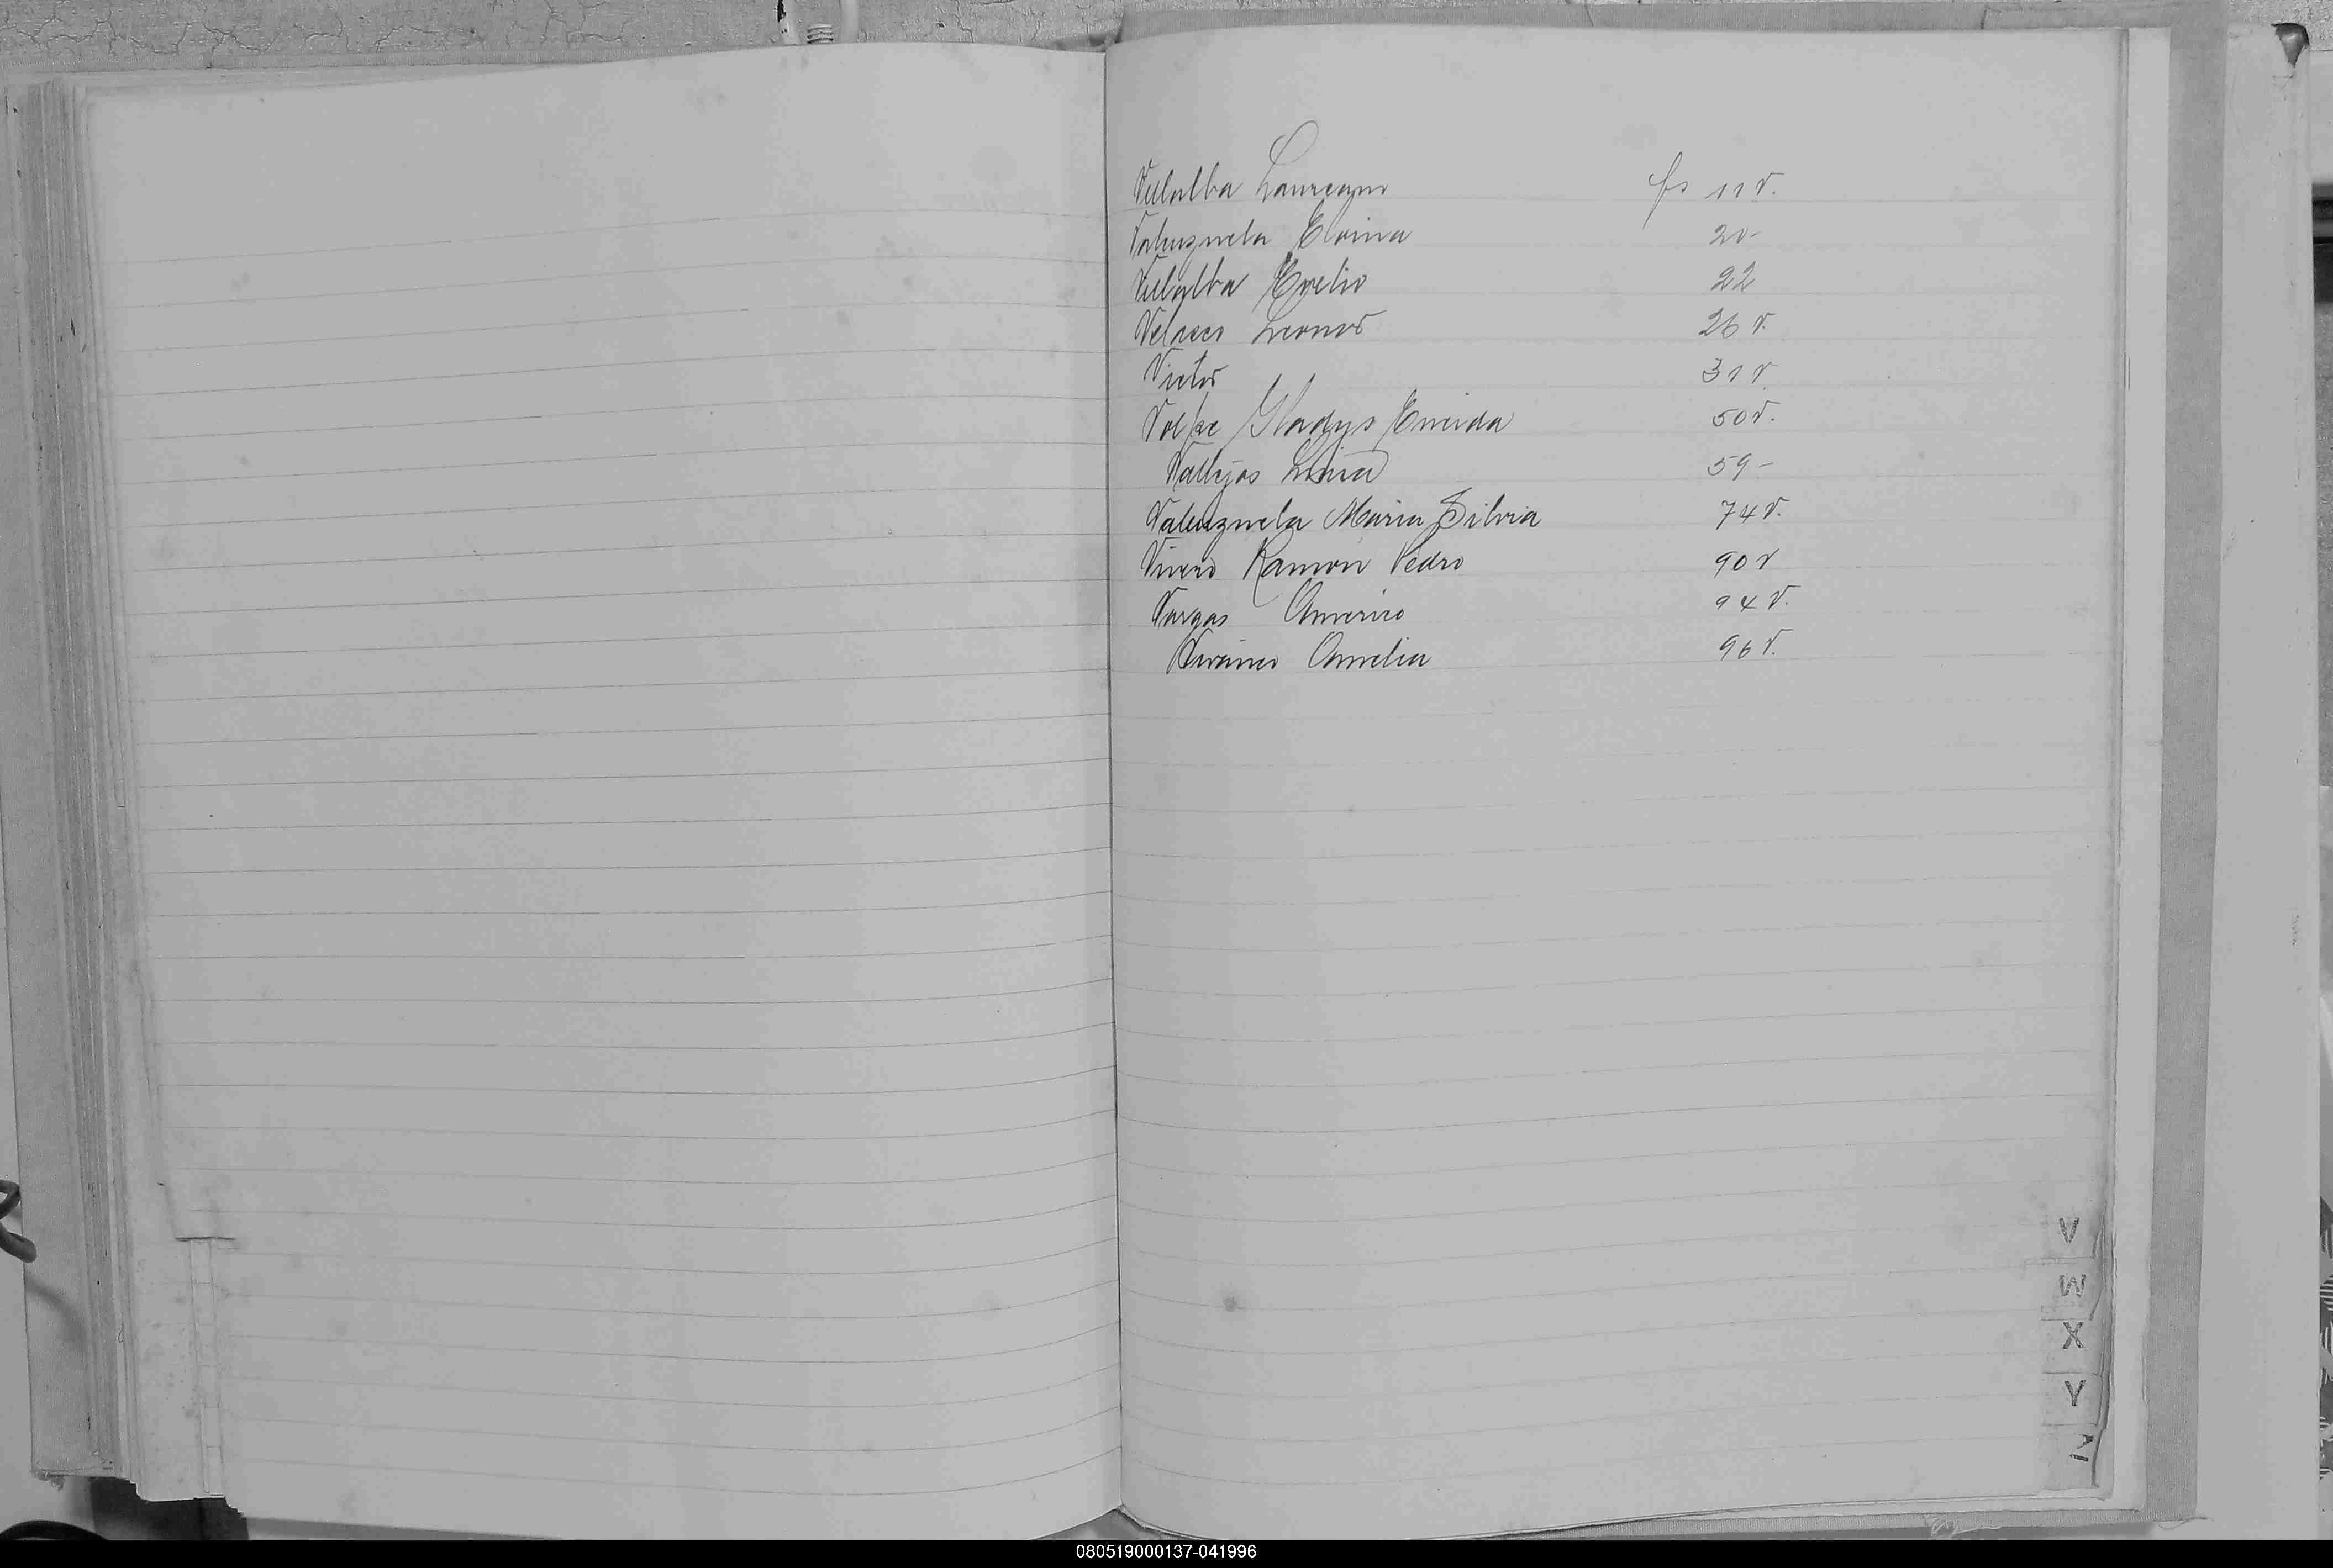 Villalba Laureano fs 11 v.
Valenzuela Eloina 20-
Villalba Evelio 22
Velasco Leonor 26 v.
Victor 31 v
Volpe Gladys Eneida 50 v.
Vallejos 59-
Valenzuela Maria Silvia 74 v.
Ramon Pedro 90 v
Vargas Americo 94 v.
Amelia 96 v.
V
W
X
Y
Z
080519000137-041996